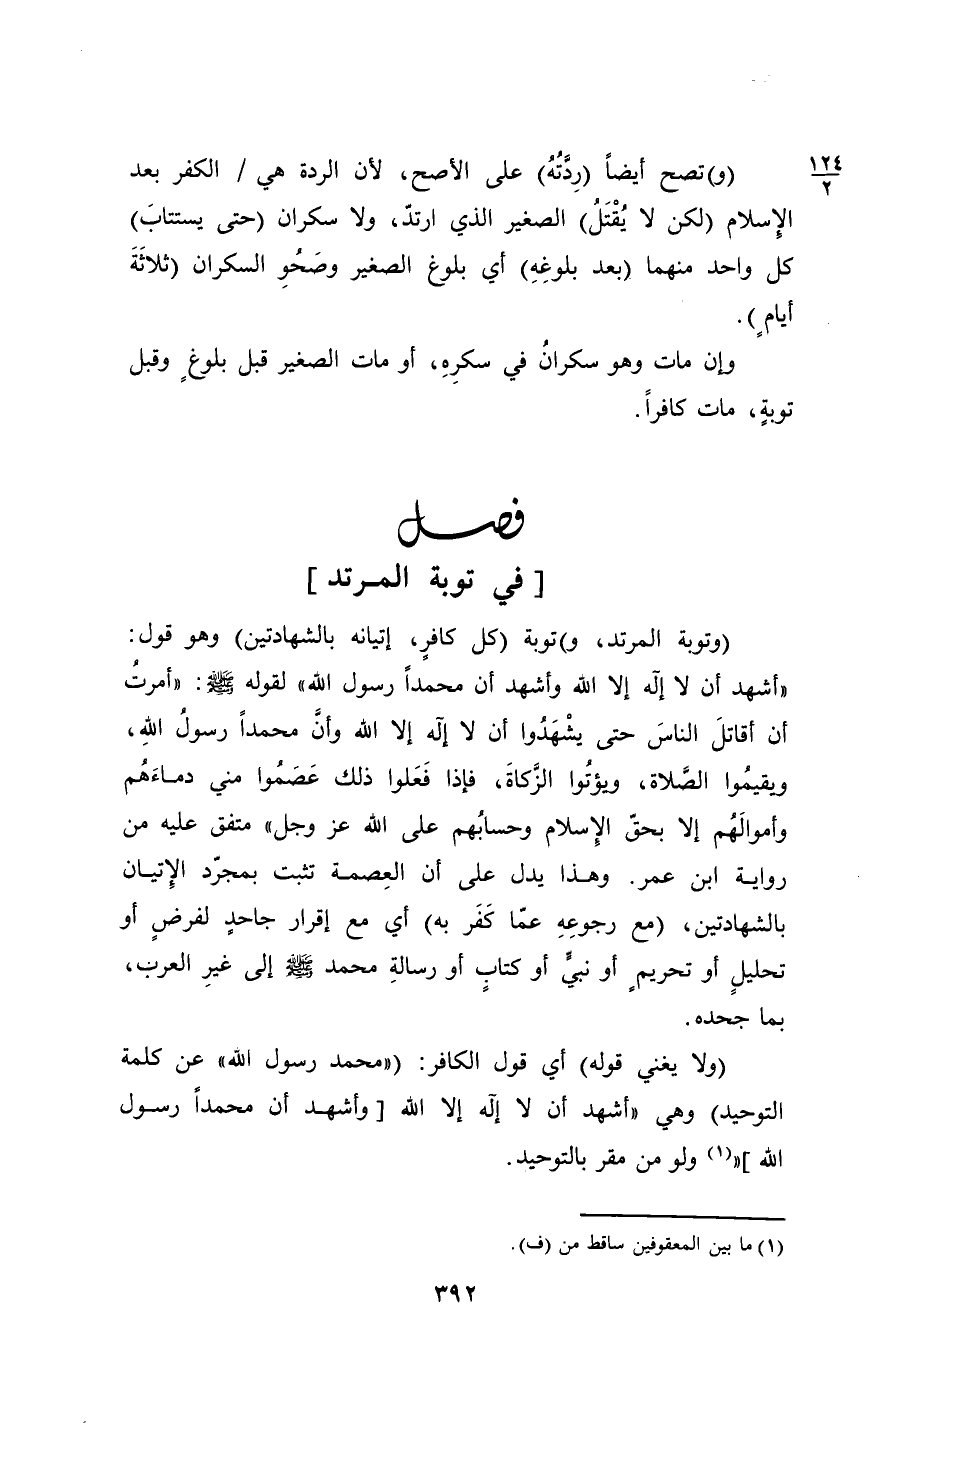 ١٢٤
٢
(و)تصح أيضاً (رِدَّتُهُ) على الأصح، لأن الردة هي / الكفر بعد
الإِسلام (لكن لا يُقْتَلُ) الصغير الذي ارتدّ، ولا سكران (حتى يستتابَ)
كل واحد منهما (بعد بلوغِهِ) أي بلوغ الصغير وصَحْوِ السكران (ثلاثَةَ
أيامٍ).
وإن مات وهو سكرانُ في سكرِهِ، أو مات الصغير قبل بلوغٍ وقبل
توبةٍ، مات كافراً.
فصل
[في توبة المرتد]
(وتوبة المرتد، و)توبة (كل كافرٍ، إتيانه بالشهادتين) وهو قول:
«أشهد أن لا إلٓه إلا الله وأشهد أن محمداً رسول الله» لقوله ﷺ: «أمرتُ
أن أقاتلَ الناسَ حتى يشْهَدُوا أن لا إلٓه إلا الله وأنَّ محمداً رسولُ اللهِ،
ويقيمُوا الصَّلاة، ويؤتُوا الزَّكاةَ، فإذا فَعَلوا ذلك عَصَمُوا مني دماءَهُم
وأموالَهُم إلا بحقّ الإِسلام وحسابُهم على الله عز وجل» متفق عليه من
رواية ابن عمر. وهذا يدل على أن العِصمة تثبت بمجرّد الإِتيان
بالشهادتين، (مع رجوعِهِ عمّا كَفَر به) أي مع إقرار جاحدٍ لفرضٍ أو
تحليلٍ أو تحريمٍ أو نبيٍّ أو كتابٍ أو رسالةِ محمد ﷺ إلى غيرِ العرب،
بما جحده.
(ولا يغني قوله) أي قول الكافر: («محمد رسول الله» عن كلمة
التوحيد) وهي «أشهد أن لا إلٓه إلا الله [وأشهد أن محمداً رسول
الله]»(١) ولو من مقر بالتوحيد.
(١) ما بين المعقوفين ساقط من (ف).
٣٩٢